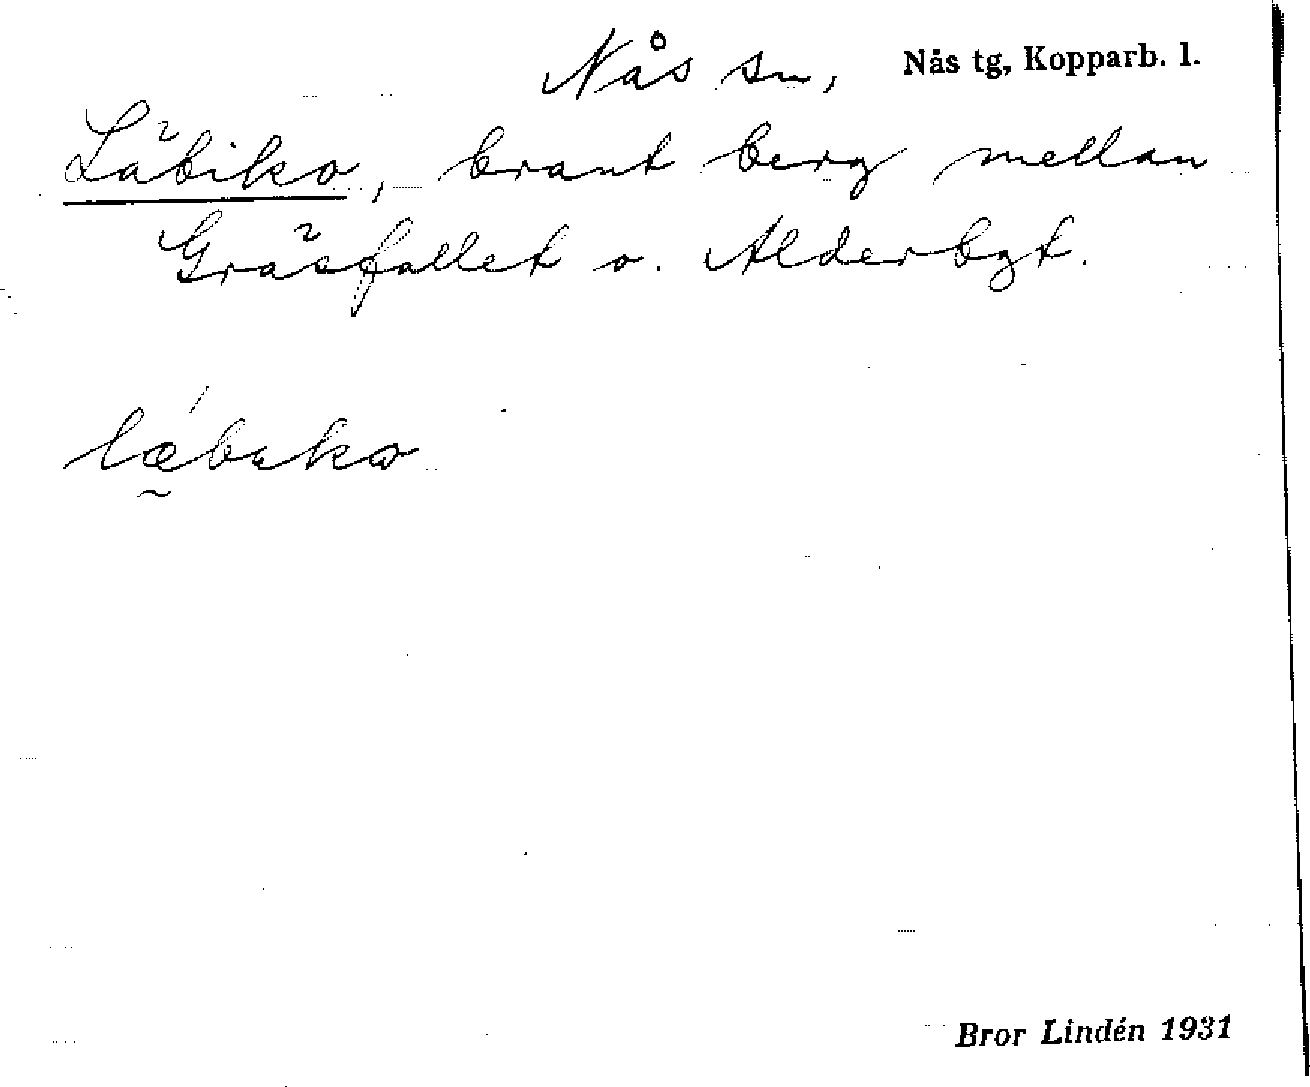 Nås sn, Nås tg, Kopparb. l.
Läbiko, brant berg mellan
Gräsfallet o. Alderbgt.
lǽbıkω
Bror Lindén 1931